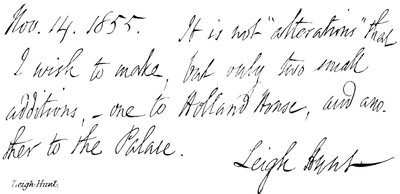 Nov. 14. 1855. It is not "alterations" that
I wish to make, but only two small
additions, – one to Holland House, and ano-
ther to the Palace.
Leigh Hunt
Leigh Hunt.